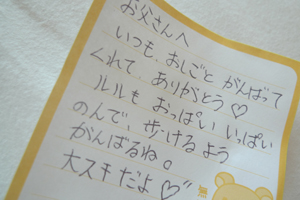 お父さんへ
いつも、おしごと がんばって
くれて、ありがとう♡
ルルも おっぱい いっぱい
のんで、歩けるよう
がんばるね。
大スキだよ♡"